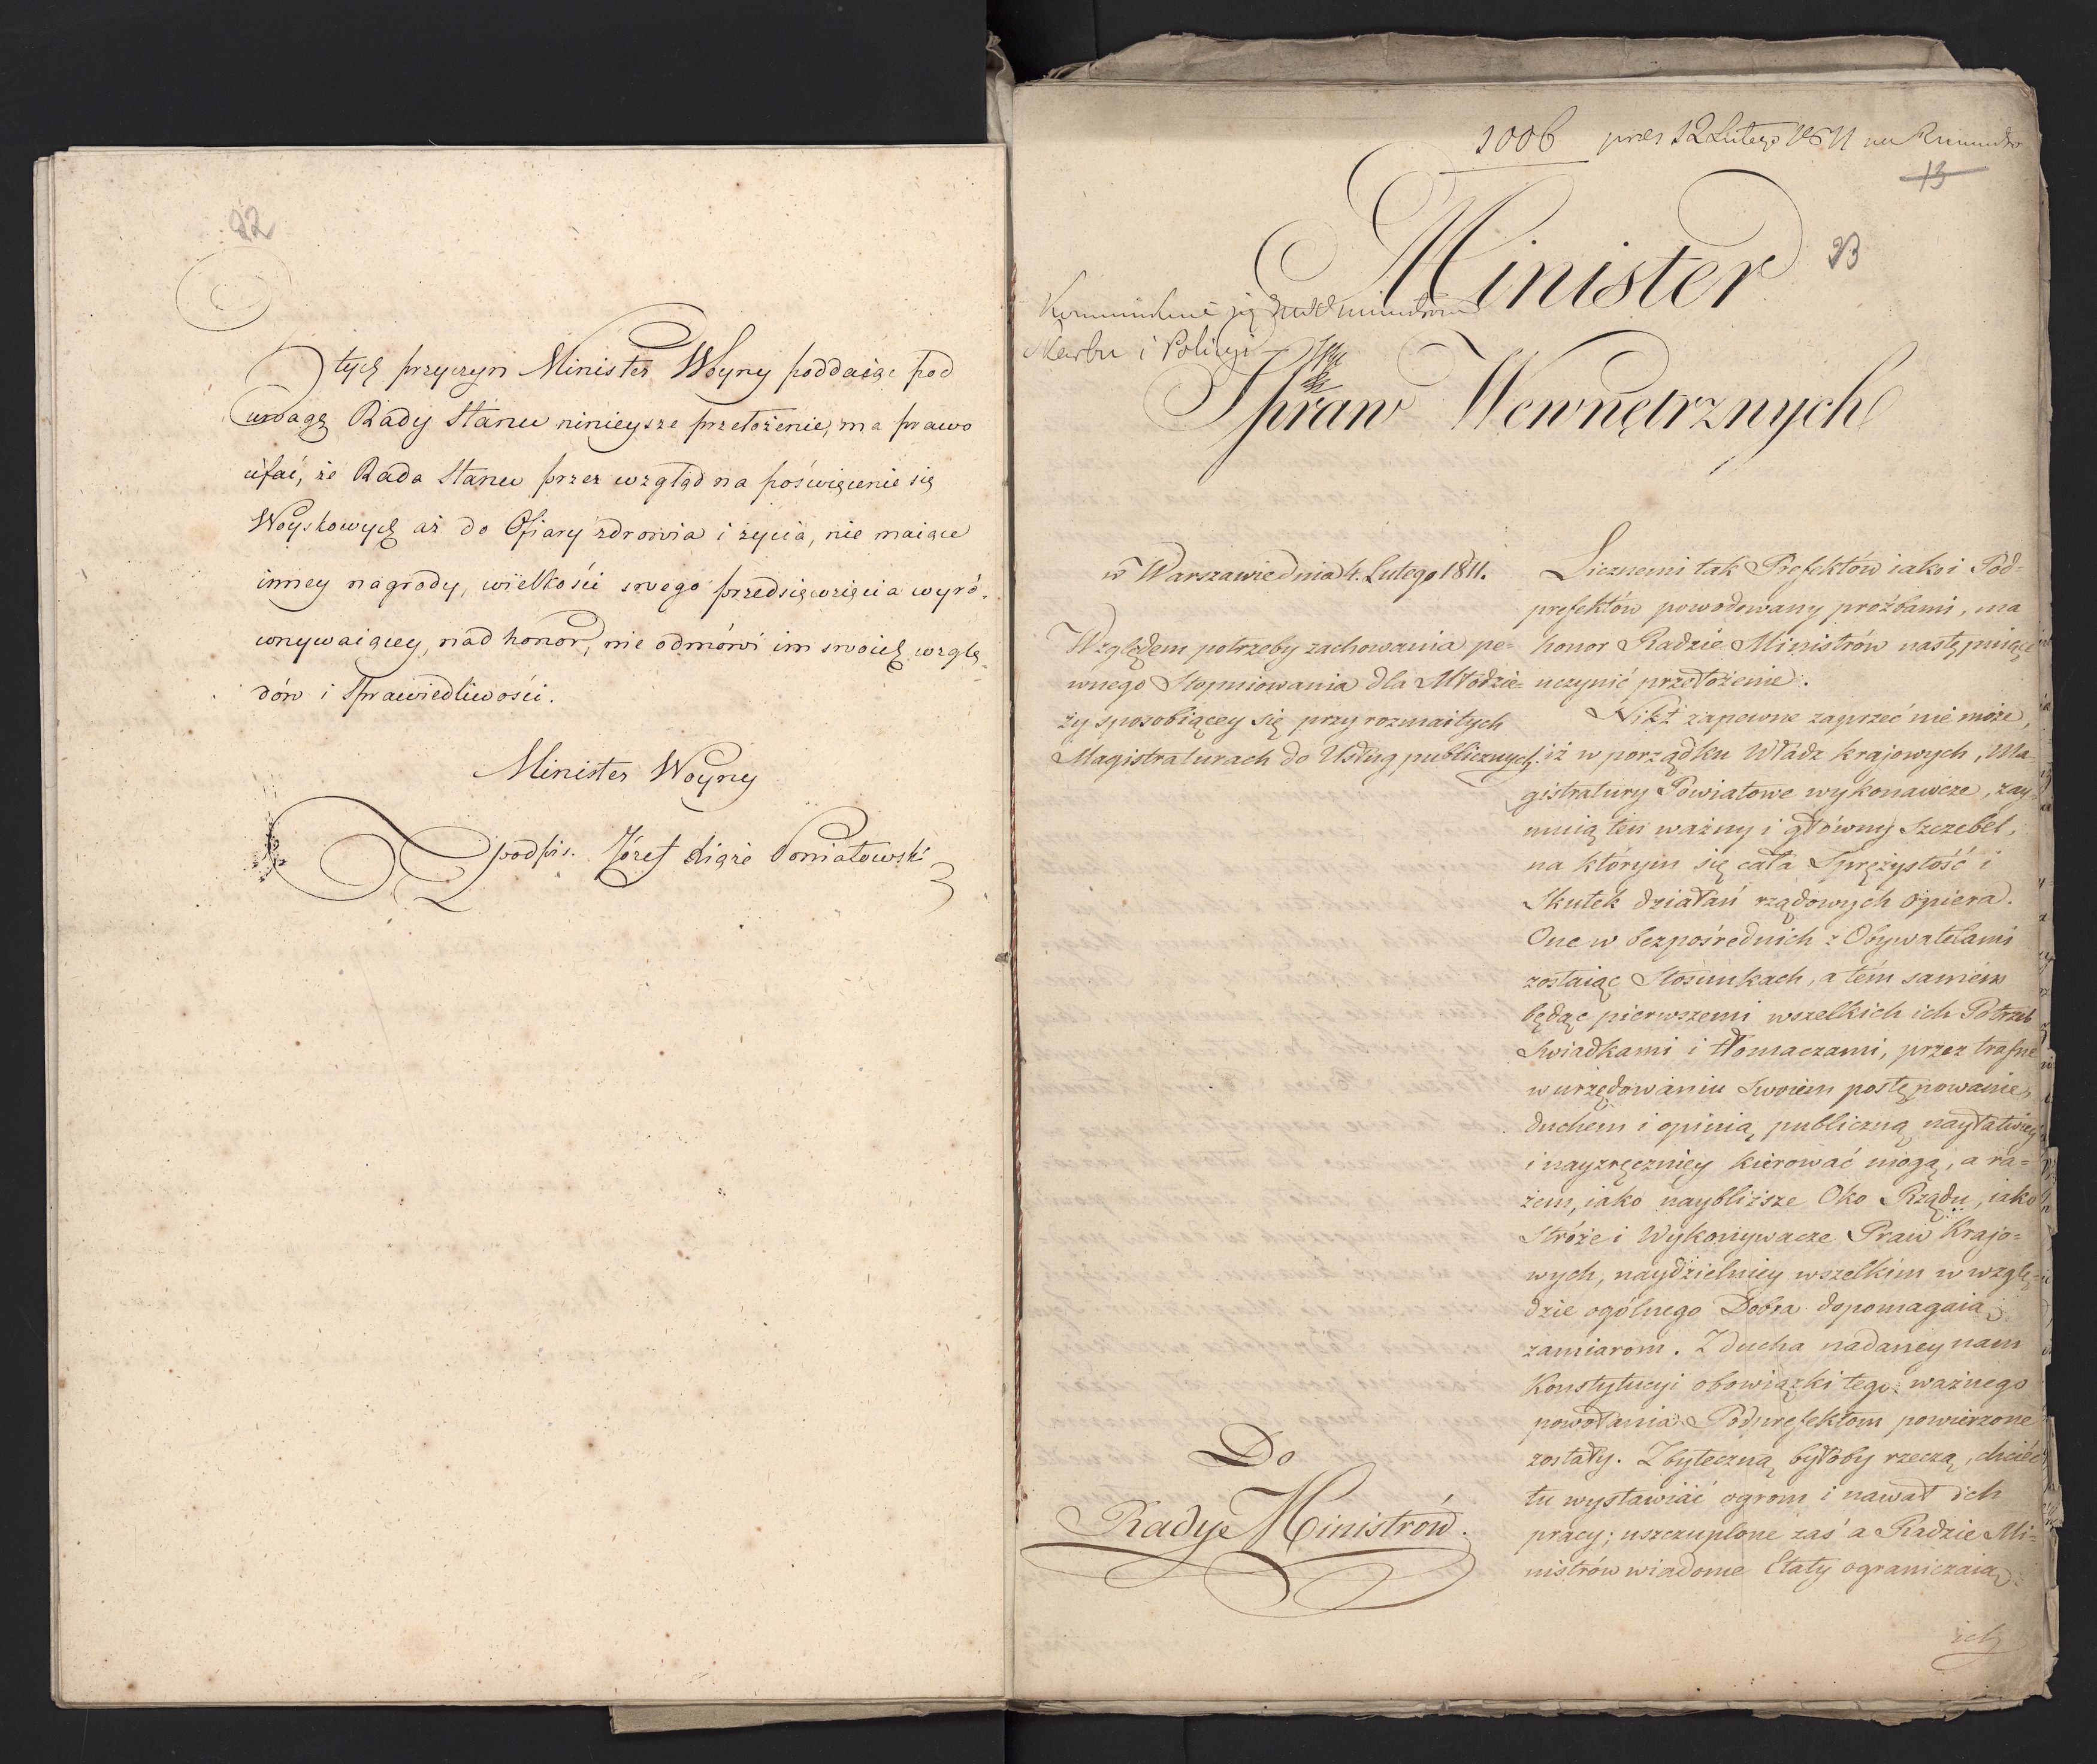 22
Z tych przyczyn Minister Woyny poddaiąc pod
uwagę Rady Stanu ninieysze przełożenie, ma prawo
ufać, że Rada Stanu przez wzgląd na poświęcenie się
Woyskowych aż do Ofiary zdrowia i życia, nie maiące
inney nagrody, wielkości swego przedsięwzięcia wyró-
wnywaiącey, nad honor, nie odmówi im swoich wzglę-
dów i Sprawiedliwości.
Minister Woyny
podpis. Józef Xiąże Poniatowski
1006 prez 12 Lutego 1811
13
23
Minister
Skarbu i Policyi
Spraw Wewnętrznych
w Warszawie dnia 4. Lutego 1811.
Względem potrzeby zachowania pe-
wnego Stopniowania dla Młodzie-
ży sposobiącey się przy rozmaitych
Magistraturach do Usług publicznych.
Do
Rady Ministrów.
Licznemi tak Prefektów iako i Pod-
prefektów powodowany prożbami, ma
honor Radzie Ministrów następuiące
uczynić przełożenie.
Nikt zapewne zaprzeć nie może,
iż w porządku Władz krajowych, Ma-
gistratury Powiatowe wykonawcze, zay-
muią ten ważny i główny Szczebel,
na którym się cała Sprężystość i
Skutek działań rządowych opiera.
One w bezpośrednich z Obywatelami
zostaiąc Stosunkach, a tém samém
będąc pierwszemi wszelkich ich Potrzeb
Swiadkami i tłomaczami, przez trafne
w urzędowaniu Swoiem postępowanie,
duchem i opinią publiczną nayłatwiey
i nayzręczniey kierować mogą, a ra-
zem, iako naybliższe Oko Rządu, iako
Stróże i Wykonywacze Praw Krajo-
wych, naydzielniey wszelkim w wzglę-
dzie ogólnego Dobra dopomagaią
zamiarom. Z ducha nadaney nam
Konstytucyi obowiązki tego ważnego
powołania Podprefektom powierzone
zostały. Zbyteczną byłoby rzeczą, chcieć
tu wystawiać ogrom i nawał ich
pracy; uszczuplone zaś a Radzie Mi-
nistrów wiadome Etaty ograniczaią
ich